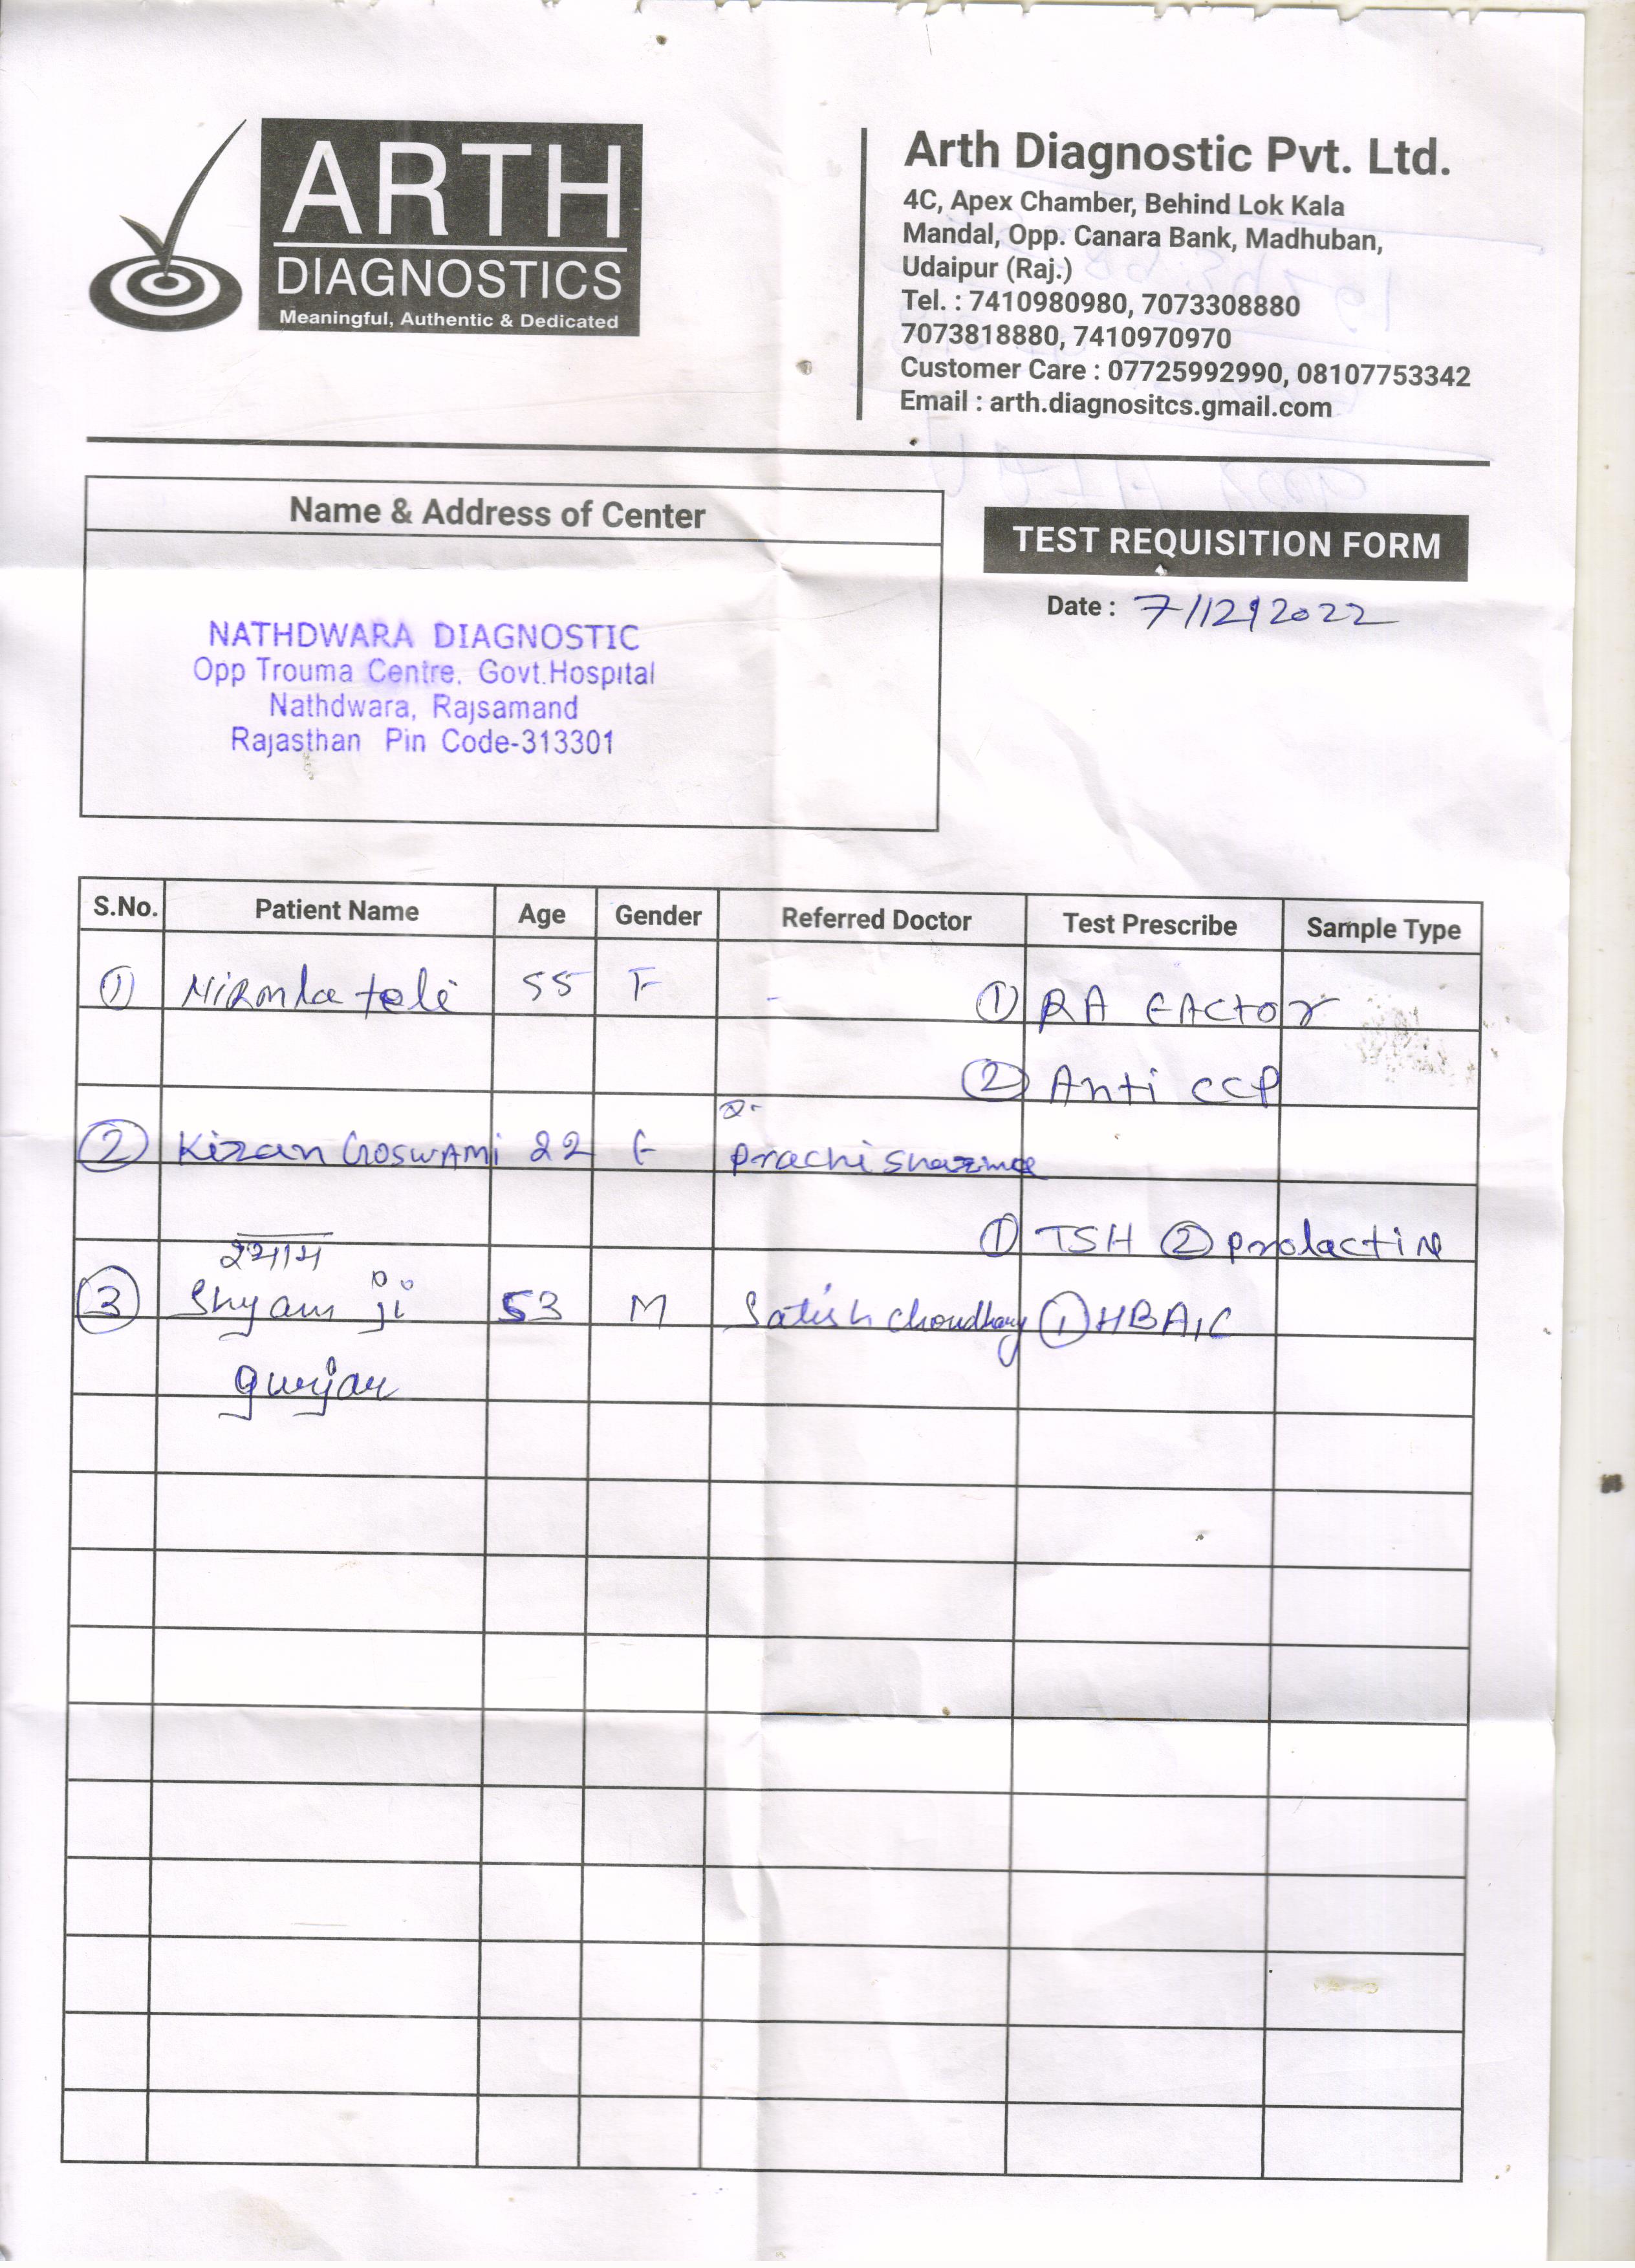 ARTH
DIAGNOSTICS
Meaningful, Authentic & Dedicated
Arth Diagnostic Pvt. Ltd.
4C, Apex Chamber, Behind Lok Kala
Mandal, Opp. Canara Bank, Madhuban,
Udaipur (Raj.)
Tel. : 7410980980, 7073308880
7073818880, 7410970970
Customer Care : 07725992990, 08107753342
Email : arth.diagnositcs.gmail.com
Name & Address of Center
TEST REQUISITION FORM
Date : 7/12/2022
NATHDWARA DIAGNOSTIC
Opp Trouma Centre, Govt.Hospital
Nathdwara, Rajsamand
Rajasthan Pin Code-313301
S.No. Patient Name Age Gender Referred Doctor Test Prescribe Sample Type
① Nirmla teli 55 F - ① RA FACtor
② Anti CCP
Dr
② Kiran Goswami 22 F prachi sharma
① TSH ② prolactin
श्याम
③ Shyam ji 53 M Satish Choudhary ① HBA1C
gurjar